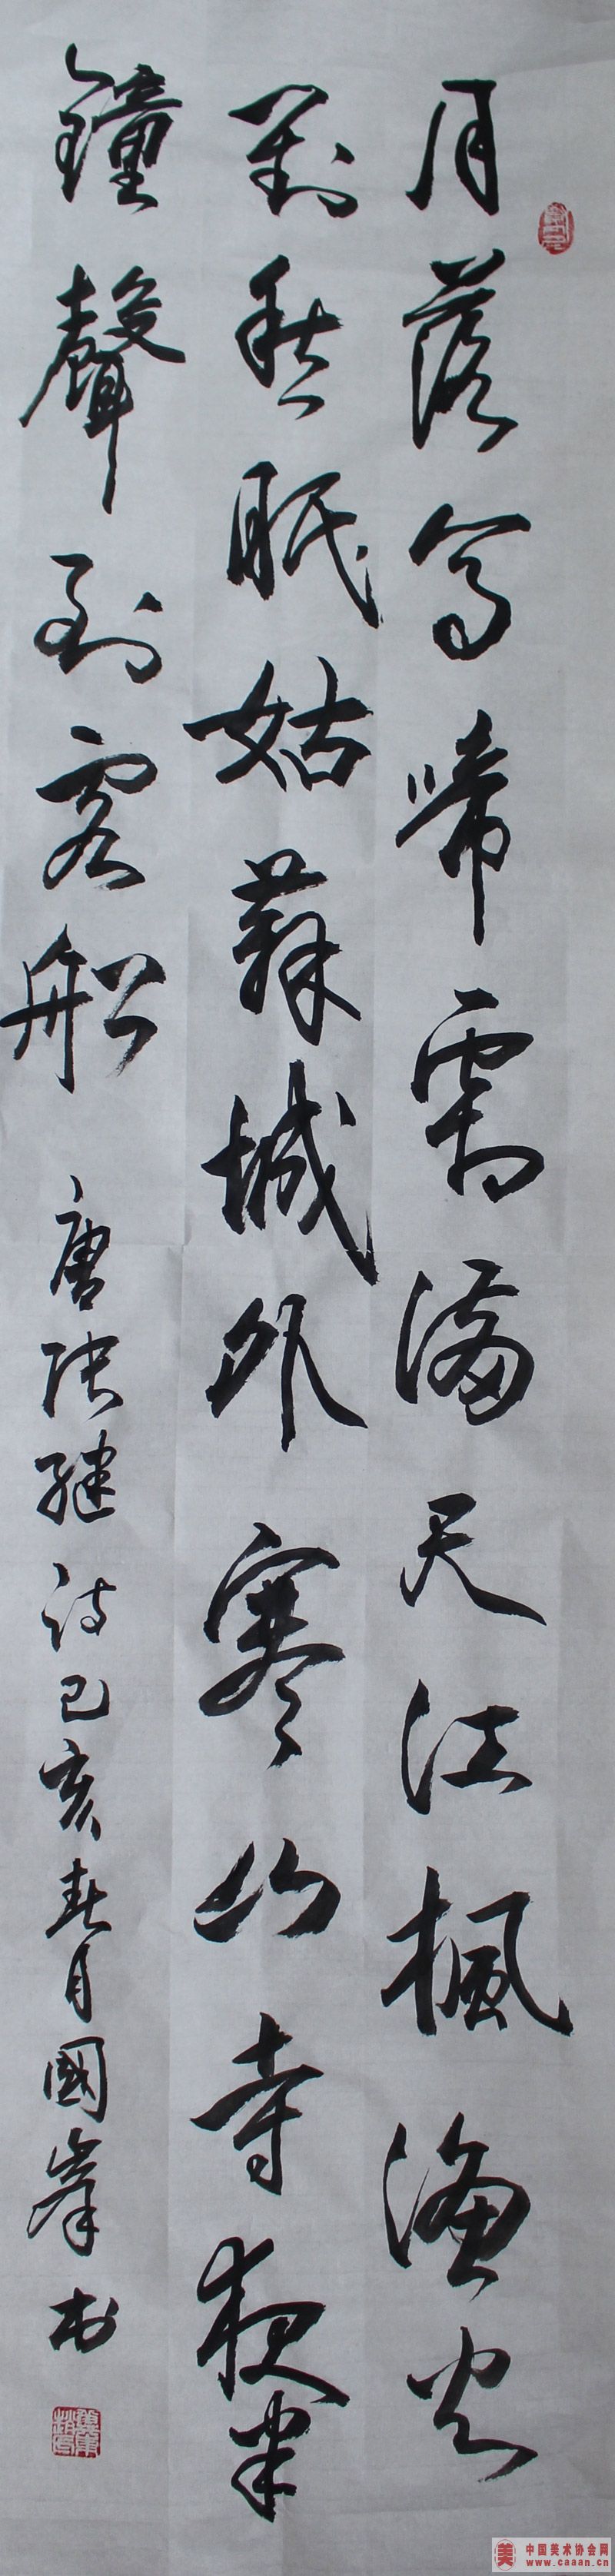 月落烏啼霜滿天江楓漁火
對愁眠姑蘇城外寒山寺夜半
鐘聲到客船
唐張繼詩己亥春月國峰书
中国美术协会网
www.caaan.cn